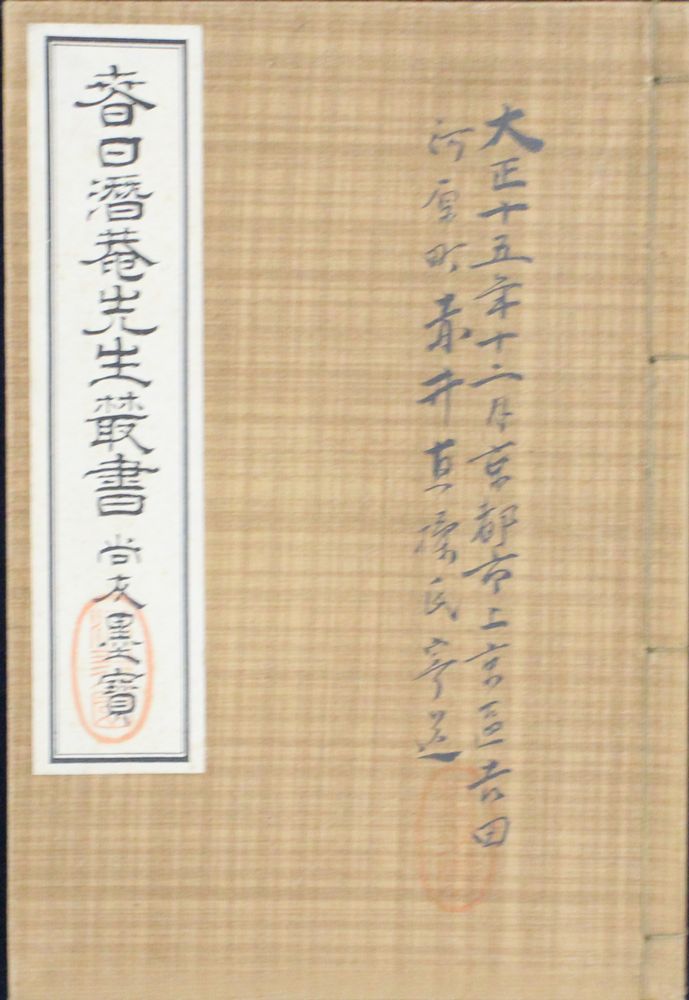 大正十五年十二月京都市上京區吉田
河原町 井 氏寄送
春日潛菴先生叢書 尚友墨寶